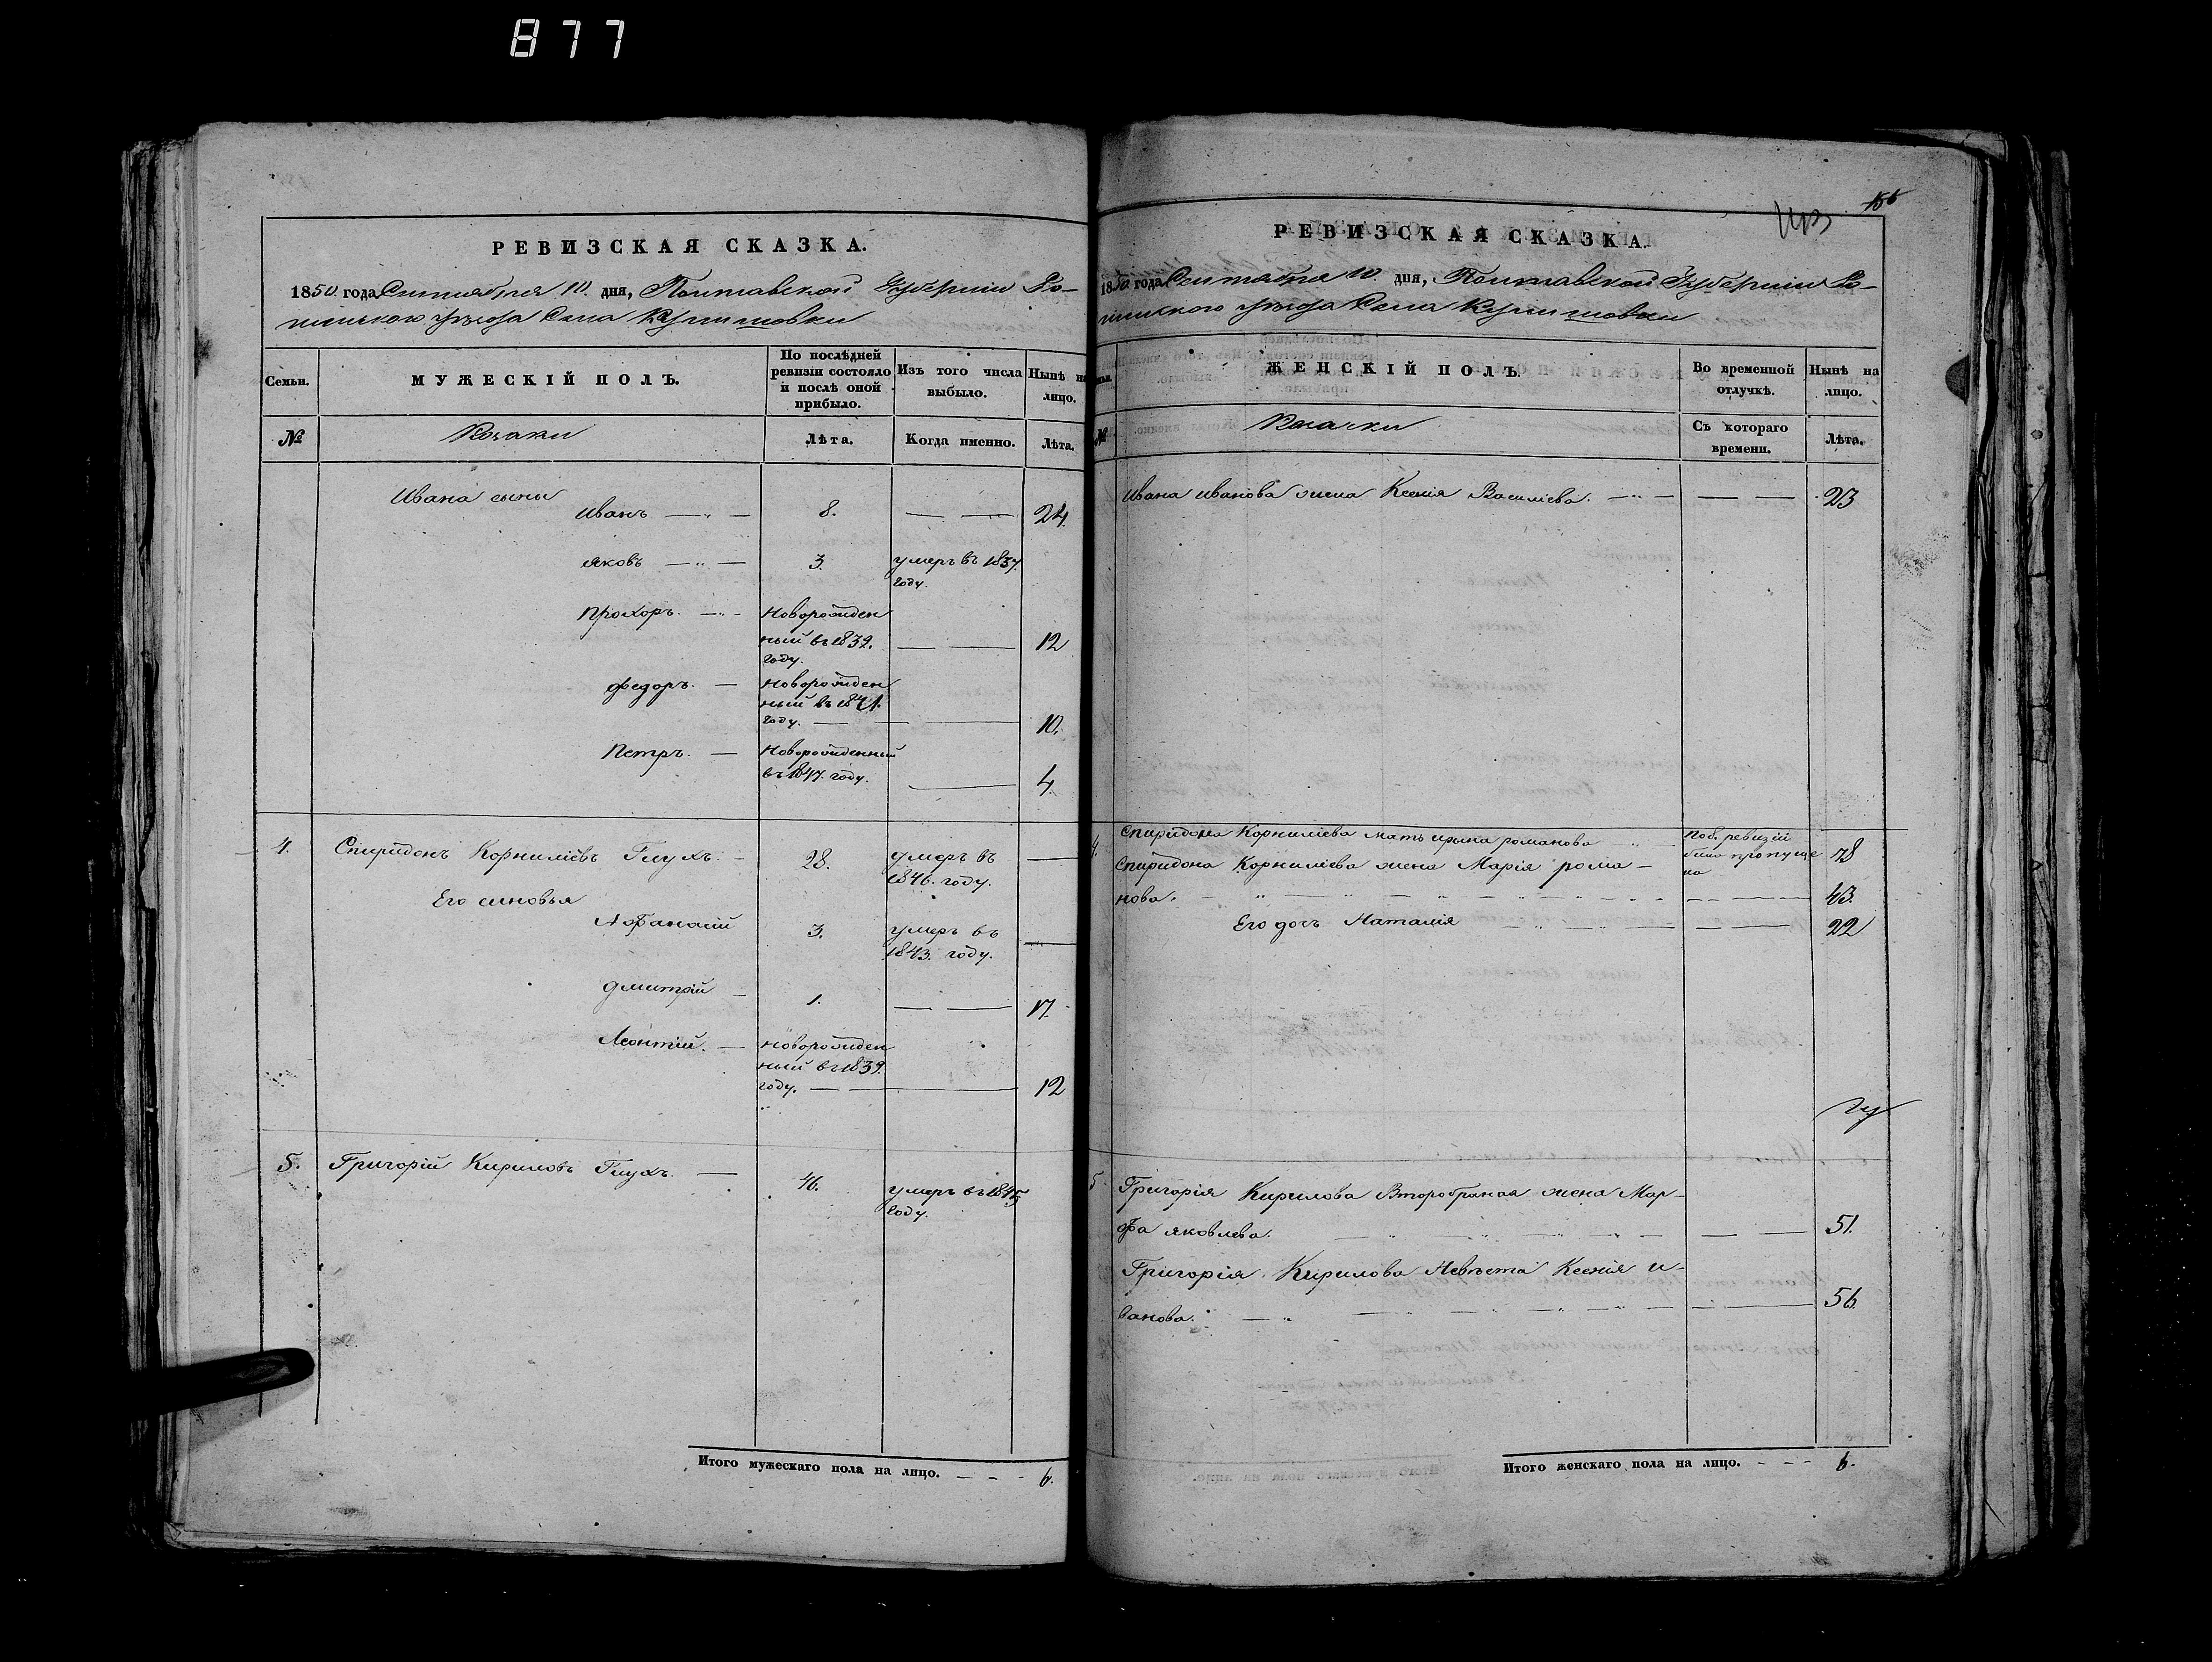 877
РЕВИЗСКАЯ СКАЗКА.
1850. года Сентября 10. дня, Полтавской Губернии Ро-
менского уѣзда Села
Семьи.
МУЖЕСКІЙ ПОЛЪ.
По послѣдней ревизіи состояло и послѣ оной прибыло.
Изъ того числа выбыло.
Нынѣ на лицо.
№
Козаки
Лѣта.
Когда именно.
Лѣта.
Ивана сыны
Иванъ — 8. — — 24.
Яковъ — 3. умеръ въ 1837.
году.
Прохоръ. — Новорожден
ный въ 1839.
году. — — 12
Федоръ. — Новорожден
ный въ 1841.
году. — — 10.
Петръ. — Новорожденный
въ 1847. году. — 4
4. Спиридонъ Корниліевъ Глухъ. — 28. умеръ въ —
1846. году.
Его сыновья
Афанасій 3. умеръ въ —
1843. году.
Дмитрій — 1. — — 17.
Леонтій. — Новорожден
ный въ 1839.
году. — — 12
5. Григорій Кириловъ Глухъ. — 46. умеръ въ 1845
году.
Итого мужескаго пола на лицо. — — - 6.
156
РЕВИЗСКАЯ СКАЗКА.
1850. года Сентября 10. дня, Полтавской Губерніи Ро-
менского уѣзда Села
Семьи.
ЖЕНСКІЙ ПОЛЪ.
Во временной отлучкѣ.
Нынѣ на лицо.
№
Козачки
Съ котораго времени.
Лѣта.
Ивана Иванова жена Ксенія Василіева. — — — 23
4. Спиридона Корниліева мать Ирына Романова По 8. ревизій
была пропуще
на 78
Спиридона Корниліева жена Марія Рома-
нова. — — 43.
Его дочъ Наталія — — 22
5 Григорія Кирилова Второбрачная жена Мар-
фа Яковлева. — — 51.
Григорія Кирилова Невѣста Ксенія И-
ванова. — — 56.
Итого женскаго пола на лицо. - - - 6.